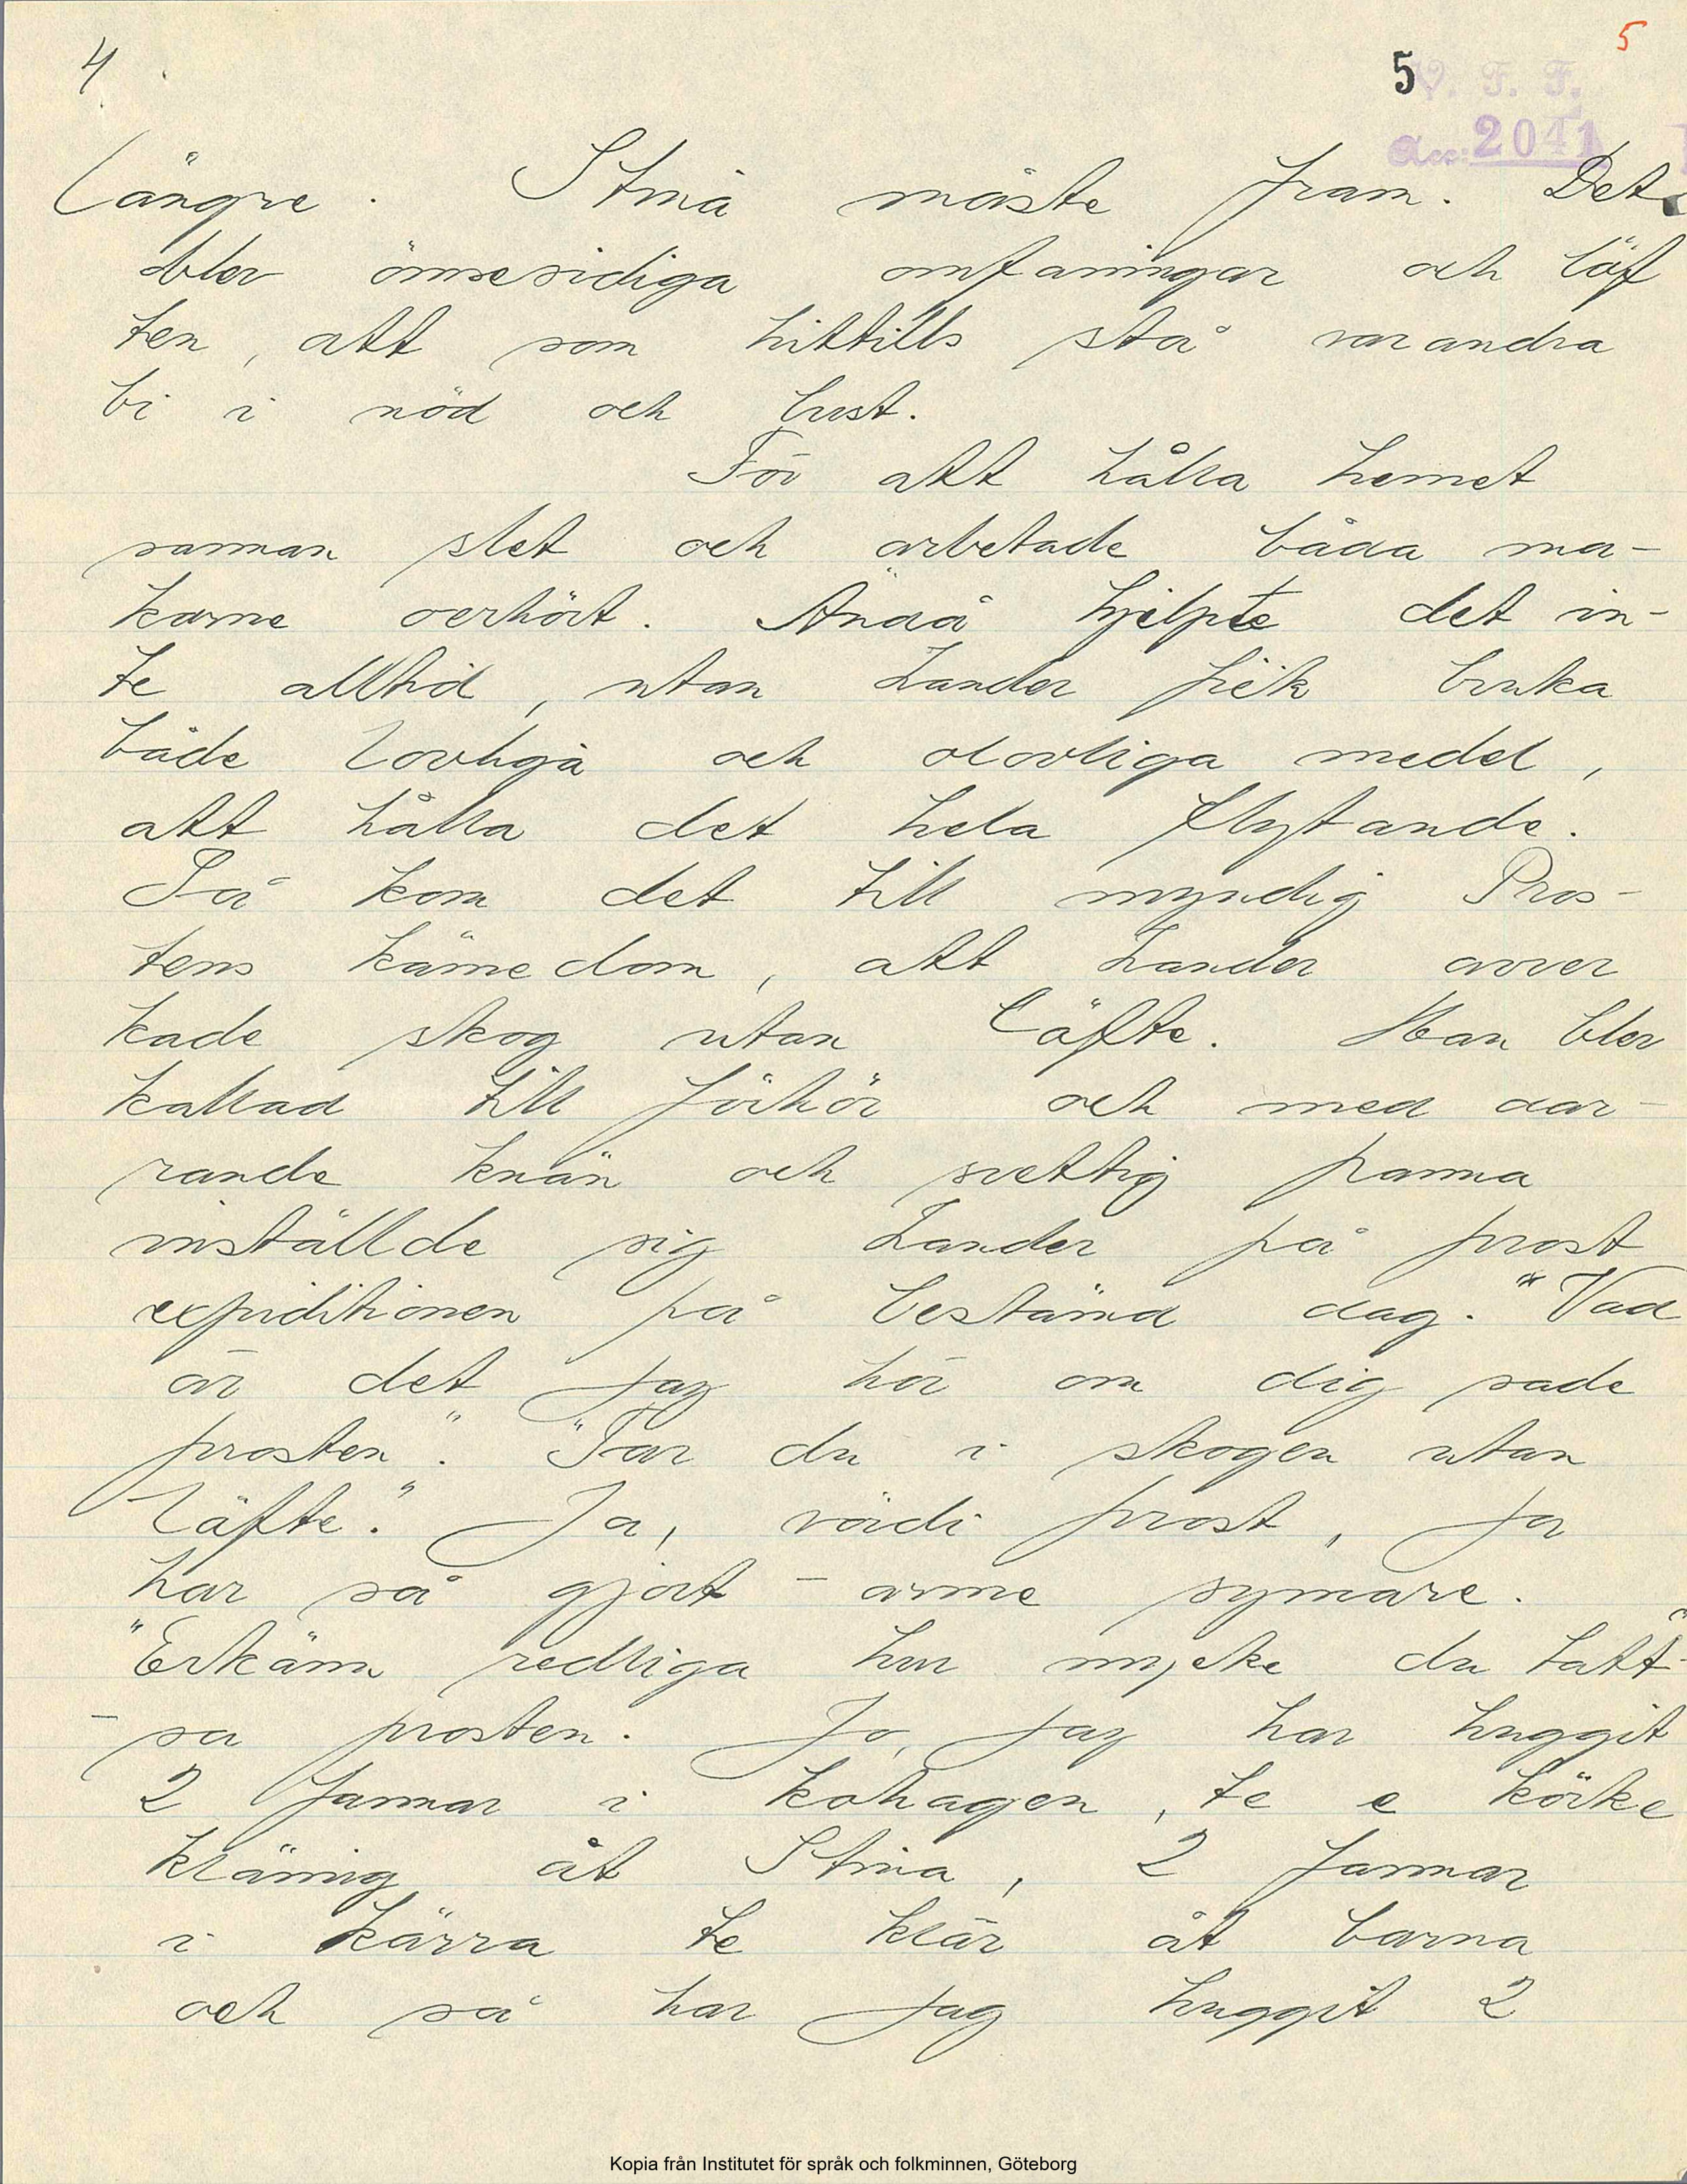 4
5
5
V. F. F.
Acc: 2041
längre. Stina måste fram. Det
blev ömsesidiga omfamingar och löf
ten, att som hittills stå varandra
bi i nöd och lust.
För att hålla hemet
samman slet och arbetade båda ma-
karne oerhört. Ändå hjelpte det in-
te alltid, utan Lander fick bruka
både lovliga och olovliga medel,
att hålla det hela flytande.
Så kom det till myndig Pros-
tens kännedom, att Lander avver
kade skog utan läfte. Han blev
kallad till förhör och med dar-
rande knän och svettig panna
inställde sig Lander på prost
expiditionen på bestämd dag. "Vad
är det jag hör om dig sade
prosten". "Tar du i skogen utan
läfte." Ja, värdi prost, ja
har så gjort - arme synnare.
"Erkänn redliga hur mycke du tatt"-
- sa prosten. Jo, jag har huggit
2 famnar i kohagen, te e körke
klänning åt Stina, 2 famnar
i kärra te klär åt barna
och så har jag huggit 2
Kopia från Institutet för språk och folkminnen, Göteborg